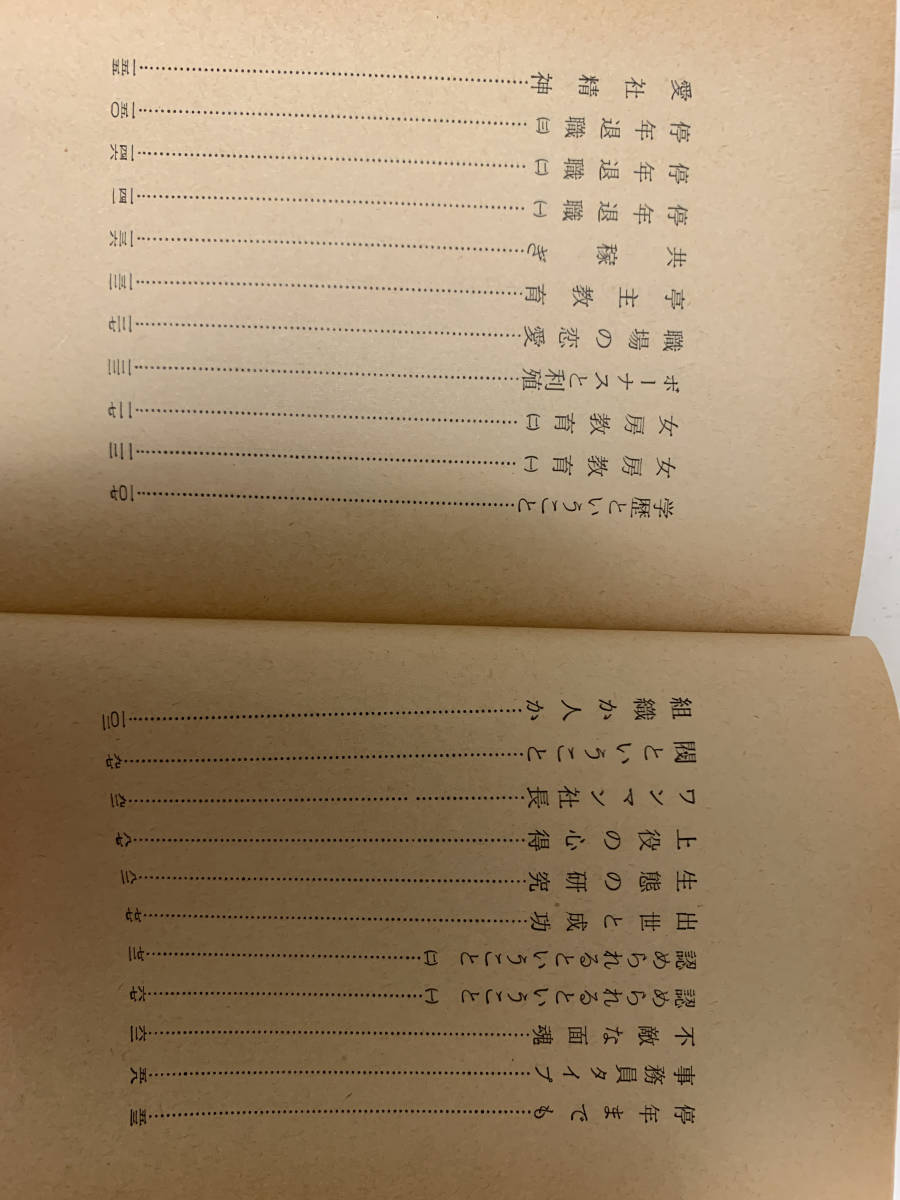 停年までも……五三
事務員タイプ……五八
不敵な面魂……六二
認められるということ ㈠……六七
認められるということ ㈡……七二
出世と成功……七七
生態の研究……八二
上役の心得……八七
ワンマン社長……九二
閥ということ……九七
組織か人か……一〇二
学歴ということ……一〇七
女房教育 ㈠……一一二
女房教育 ㈡……一一七
ボーナスと利殖……一二二
職場の恋愛……一二七
亭主教育……一三二
共稼ぎ……一三六
停年退職 ㈠……一四一
停年退職 ㈡……一四六
停年退職 ㈢……一五〇
愛社精神……一五五